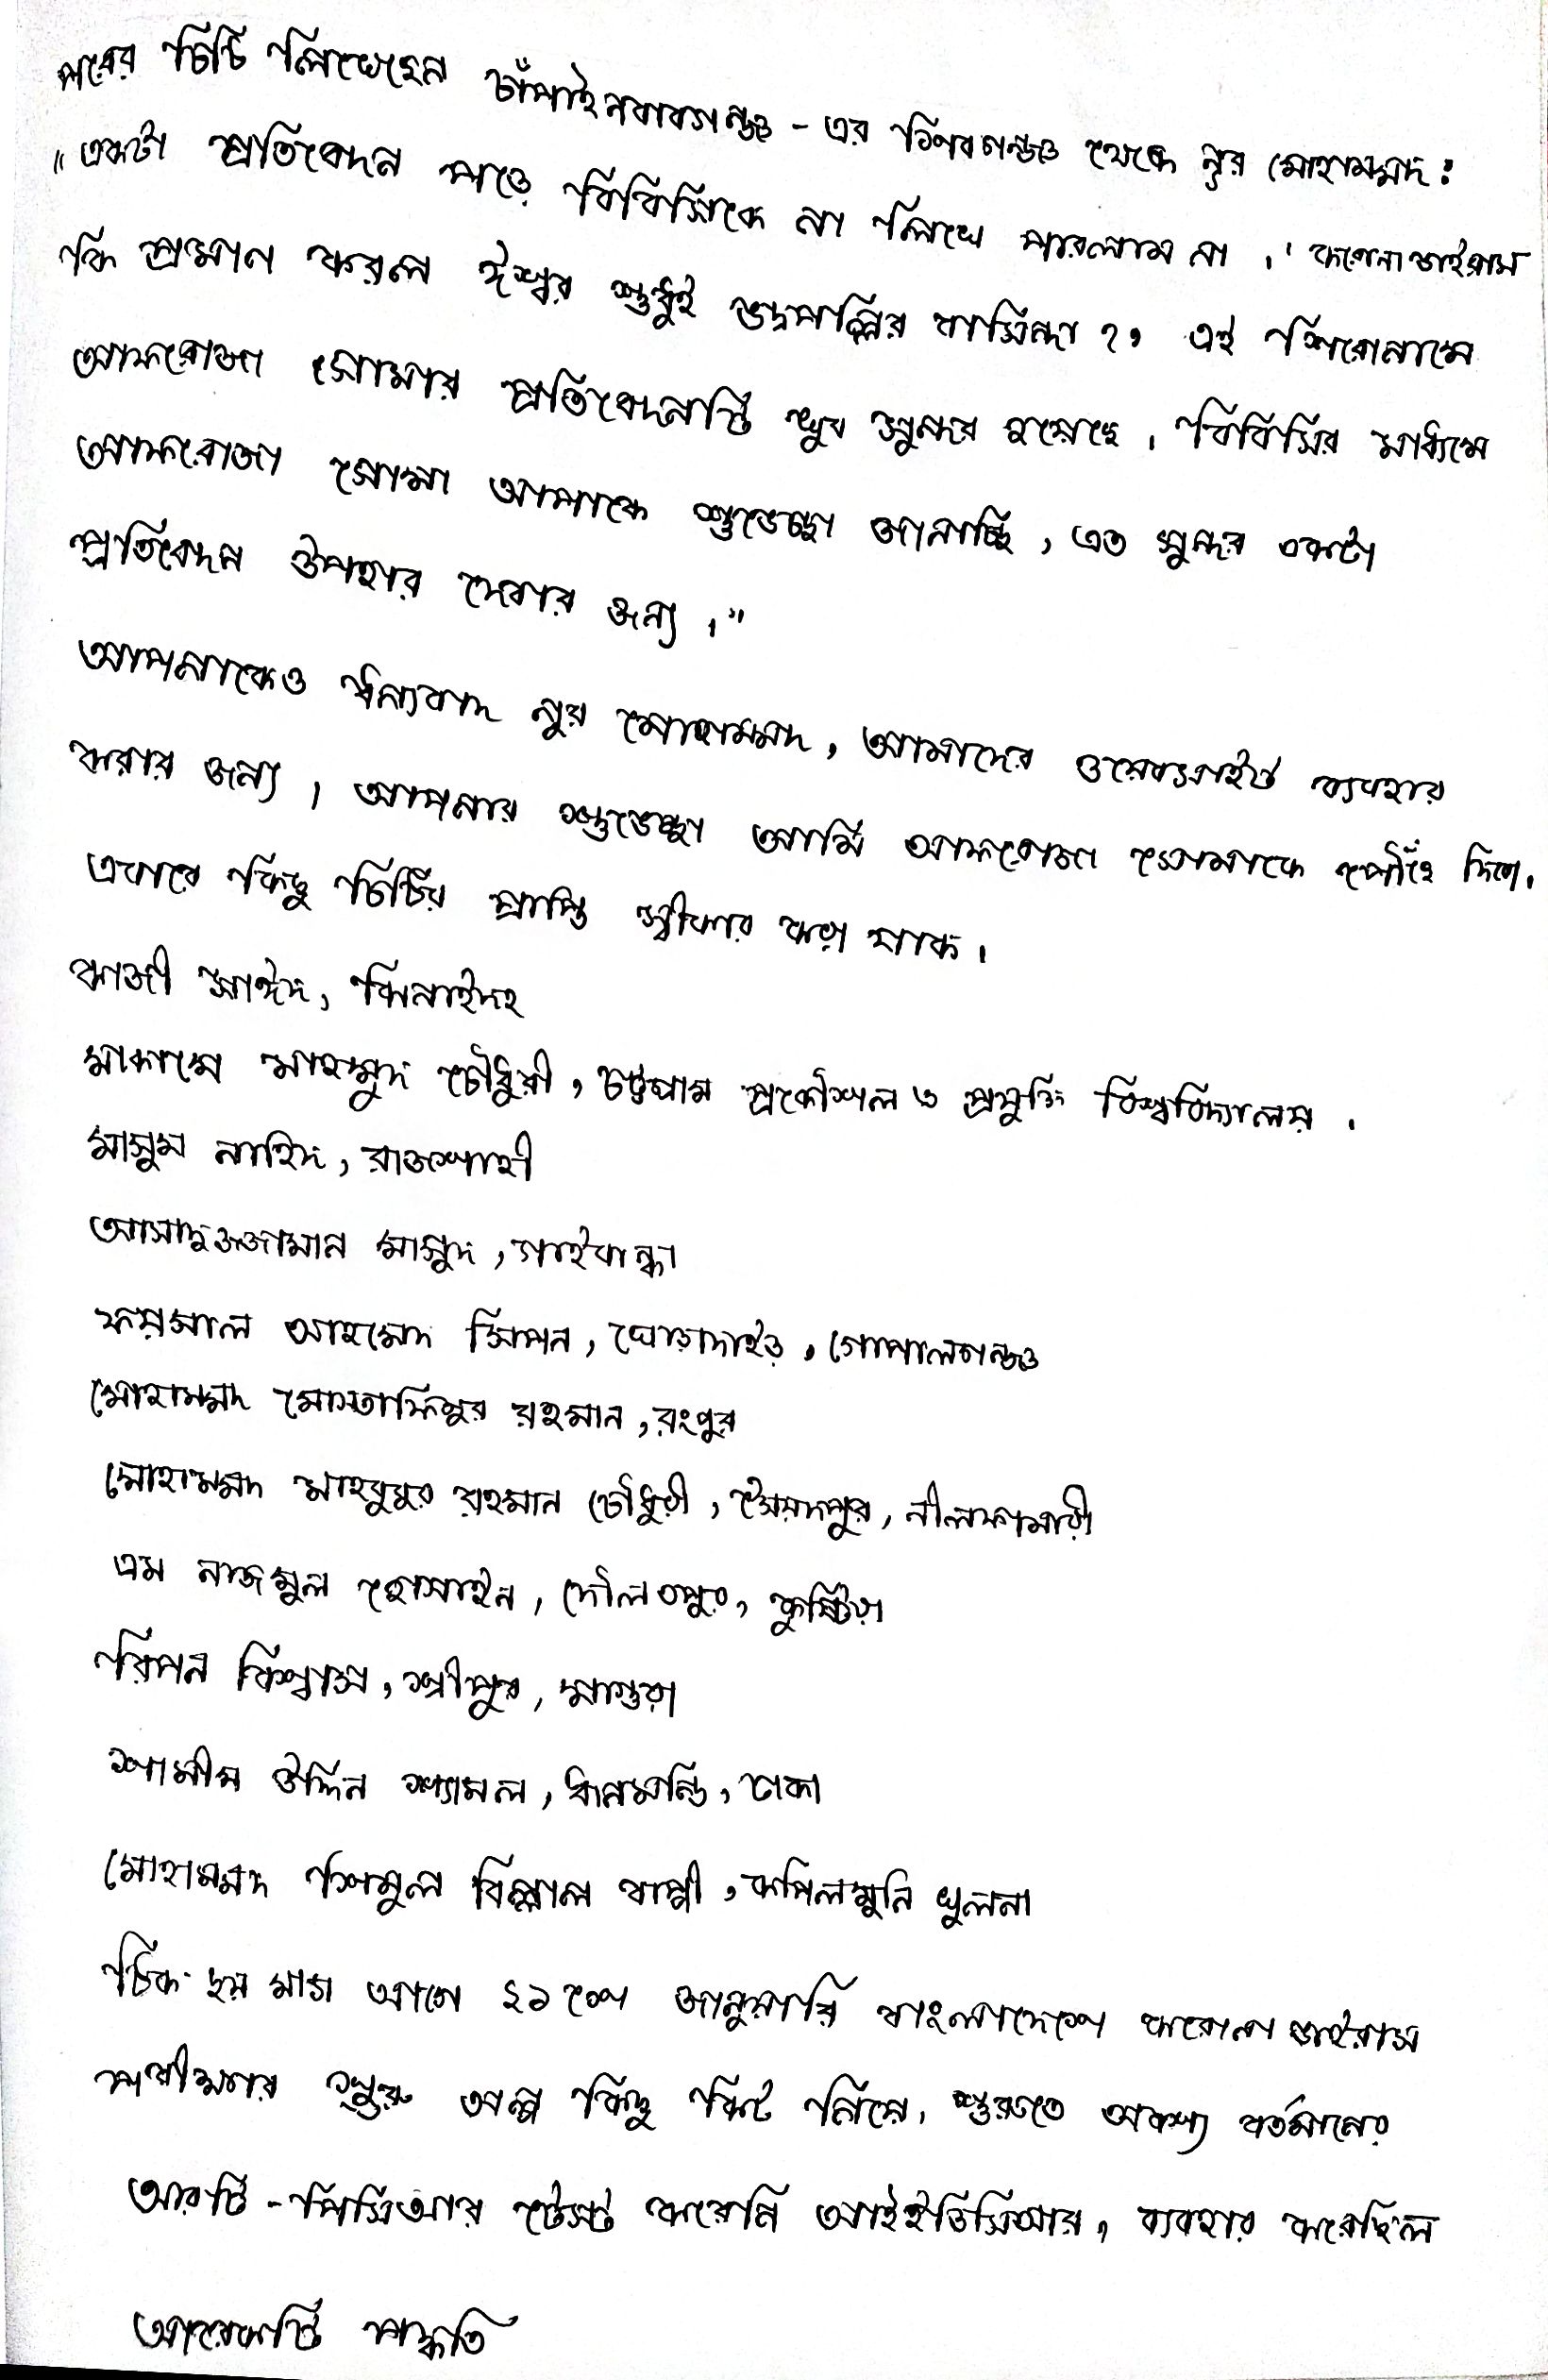 পরের চিঠি লিখেছেন চাঁপাইনবাবগন্জ - এর শিবগন্জ থেকে নূর মোহাম্মদ :
"একটা প্রতিবেদন পড়ে বিবিসিকে না লিখে পারলাম না । 'করোনা ভাইরাস
কি প্রমাণ করল ঈশ্বর শুধুই ভদ্রপল্লির বাসিন্দা ?' এই শিরোনামে
আফরোজা সোমার প্রতিবেদনটি খুব সুন্দর হয়েছে । বিবিসির মাধ্যমে
আফরোজা সোমা আপাকে শুভেচ্ছা জানাচ্ছি, এত সুন্দর একটা
প্রতিবেদন উপহার দেবার জন্য ।"
আপনাকেও ধন্যবাদ নুর মোহাম্মদ, আমাদের ওয়েবসাইট ব্যবহার
করার জন্য । আপনার শুভেচ্ছা আমি আফরোজা সোমাকে পৌঁছে দিবো।
এবারে কিছু চিঠির প্রাপ্তি স্বীকার করা যাক ।
কাজী সাঈদ, ঝিনাইদহ
মাকামে মাহমুদ চৌধুরী, চট্টগ্রাম প্রকৌশল ও প্রযুক্তি বিশ্ববিদ্যালয় ।
মাসুম নাহিদ, রাজশাহী
আসাদুজ্জামান মাসুদ, গাইবান্ধা
ফয়সাল আহমেদ সিপন, ঘোড়াদাইড়, গোপালগন্জ
মোহাম্মদ মোস্তাফিসুর রহমান, রংপুর
মোহাম্মদ মাহবুবুর রহমান চৌধুরী, সৈয়দপুর, নীলফামারী
এম নাজমুল হোসাইন, দৌলতপুর, কুষ্টিয়া
রিপন বিশ্বাস, শ্রীপুর, মাগুরা
শামীম উদ্দিন শ্যামল, ধানমন্ডি, ঢাকা
মোহাম্মদ শিমুল বিল্লাল বাপ্পী, কপিলমুনি খুলনা
ঠিক ছয় মাস আগে ২১শে জানুয়ারি বাংলাদেশে করোনা ভাইরাস
পরীক্ষার শুরু অল্প কিছু কিট নিয়ে, শুরুতে অবশ্য বর্তমানের
আরটি - পিসিআর টেস্ট করেনি আইইডিসিআর, ব্যবহার করেছিল
আরেকটি পদ্ধতি